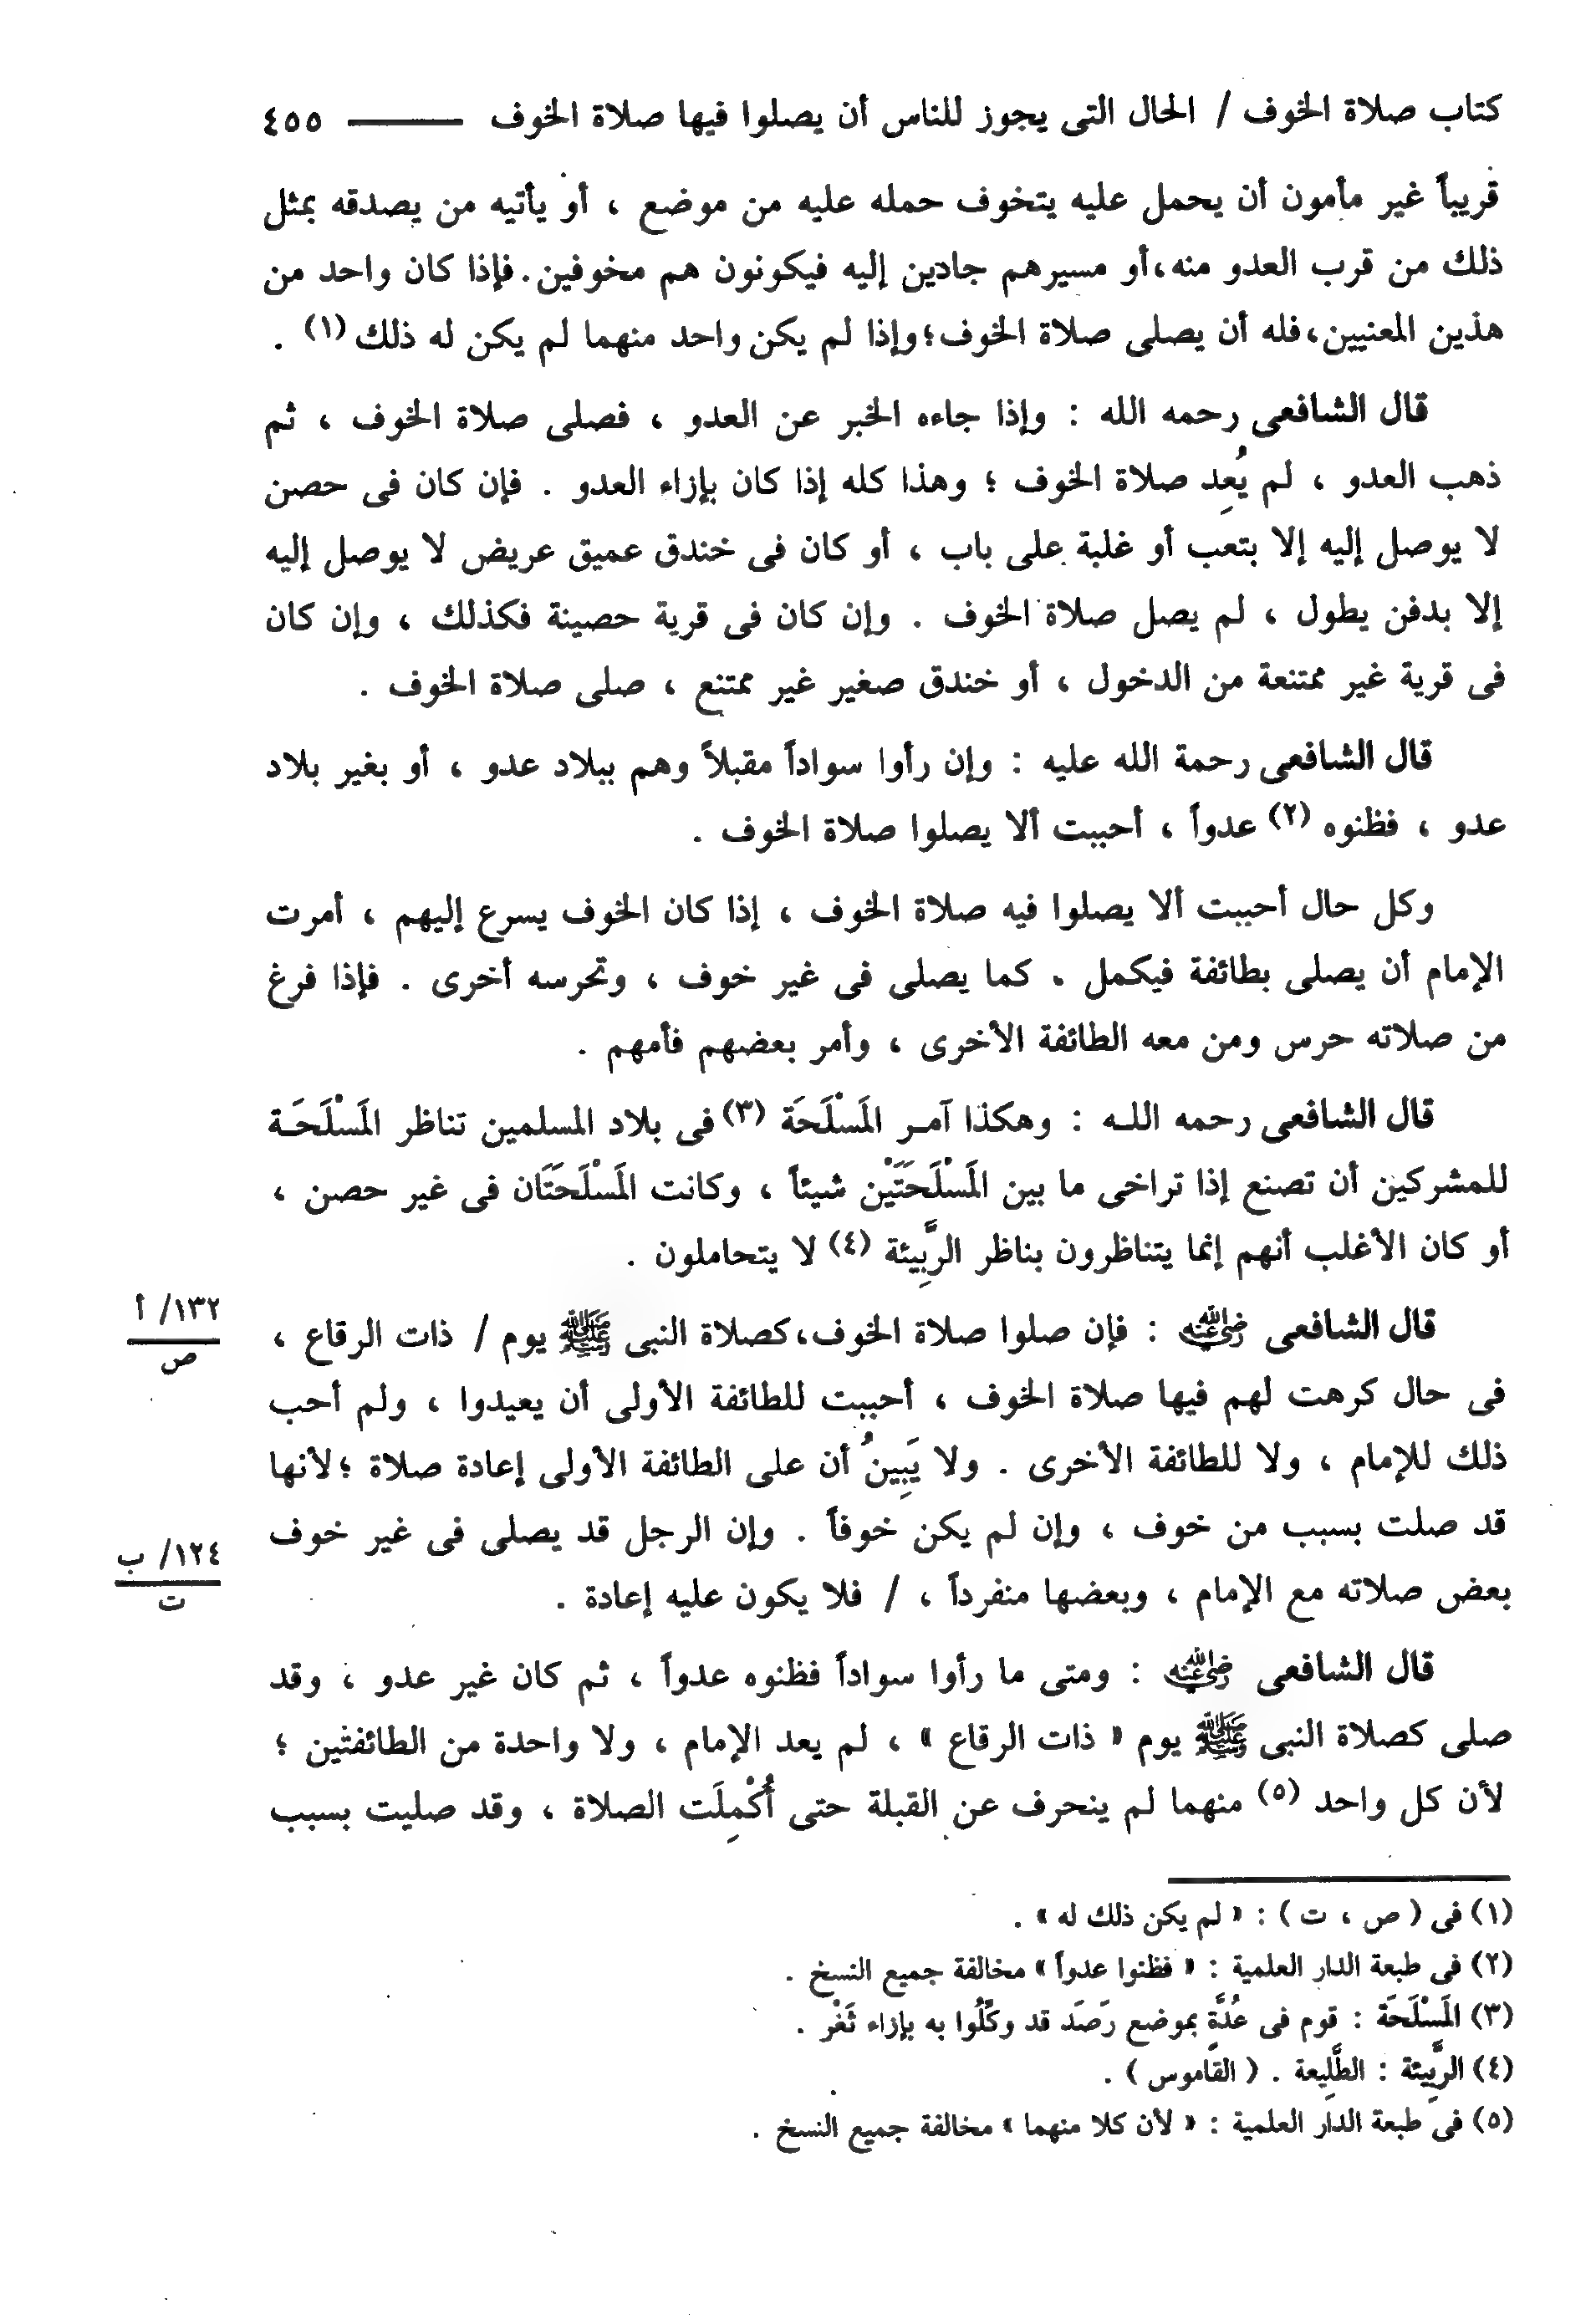 كتاب صلاة الخوف / الحال التى يجوز للناس أن يصلوا فيها صلاة الخوف ——— ٤٥٥
قريباً غير مأمون أن يحمل عليه يتخوف حمله عليه من موضع ، أو يأتيه من يصدقه بمثل
ذلك من قرب العدو منه،أو مسيرهم جادين إليه فيكونون هم مخوفين.فإذا كان واحد من
هذين المعنيين،فله أن يصلى صلاة الخوف؛وإذا لم يكن واحد منهما لم يكن له ذلك (١) .
قال الشافعى رحمه الله : وإذا جاءه الخبر عن العدو ، فصلى صلاة الخوف ، ثم
ذهب العدو ، لم يُعِد صلاة الخوف ؛ وهذا كله إذا كان بإزاء العدو . فإن كان فى حصن
لا يوصل إليه إلا بتعب أو غلبة على باب ، أو كان فى خندق عميق عريض لا يوصل إليه
إلا بدفن يطول ، لم يصل صلاة الخوف . وإن كان فى قرية حصينة فكذلك ، وإن كان
فى قرية غير ممتنعة من الدخول ، أو خندق صغير غير ممتنع ، صلى صلاة الخوف .
قال الشافعى رحمة الله عليه : وإن رأوا سواداً مقبلاً وهم ببلاد عدو ، أو بغير بلاد
عدو ، فظنوه (٢) عدواً ، أحببت ألا يصلوا صلاة الخوف .
وكل حال أحببت ألا يصلوا فيه صلاة الخوف ، إذا كان الخوف يسرع إليهم ، أمرت
الإمام أن يصلى بطائفة فيكمل . كما يصلى فى غير خوف ، وتحرسه أخرى . فإذا فرغ
من صلاته حرس ومن معه الطائفة الأخرى ، وأمر بعضهم فأمهم .
قال الشافعى رحمه اللـه : وهكذا آمـر المَسْلَحَة (٣) فى بلاد المسلمين تناظر المَسْلَحَـة
للمشركين أن تصنع إذا تراخى ما بين المَسْلَحَتَيْن شيئاً ، وكانت المَسْلَحَتَان فى غير حصن ،
أو كان الأغلب أنهم إنما يتناظرون بناظر الرَّبِيئة (٤) لا يتحاملون .
قال الشافعى رضي الله عنه : فإن صلوا صلاة الخوف،كصلاة النبى ﷺ يوم / ذات الرقاع ،
١٣٢/ أ
ص
فى حال كرهت لهم فيها صلاة الخوف ، أحببت للطائفة الأولى أن يعيدوا ، ولم أحب
ذلك للإمام ، ولا للطائفة الأخرى . ولا يَبِينُ أن على الطائفة الأولى إعادة صلاة ؛لأنها
قد صلت بسبب من خوف ، وإن لم يكن خوفاً . وإن الرجل قد يصلى فى غير خوف
١٢٤/ ب
ت
بعض صلاته مع الإمام ، وبعضها منفرداً ، / فلا يكون عليه إعادة .
قال الشافعى رضي الله عنه : ومتى ما رأوا سواداً فظنوه عدواً ، ثم كان غير عدو ، وقد
صلى كصلاة النبى ﷺ يوم « ذات الرقاع » ، لم يعد الإمام ، ولا واحدة من الطائفتين ؛
لأن كل واحد (٥) منهما لم ينحرف عن القبلة حتى أُكْمِلَت الصلاة ، وقد صليت بسبب
(١) فى ( ص ، ت ) : « لم يكن ذلك له » .
(٢) فى طبعة الدار العلمية : « فظنوا عدواً » مخالفة جميع النسخ .
(٣) المَسْلَحَة : قوم فى عُدَّةٍ بموضع رَصَد قد وكِّلُوا به بإزاء ثَغْر .
(٤) الرَّبِيئة : الطَّلِيعة . ( القاموس ) .
(٥) فى طبعة الدار العلمية : « لأن كلا منهما » مخالفة جميع النسخ .